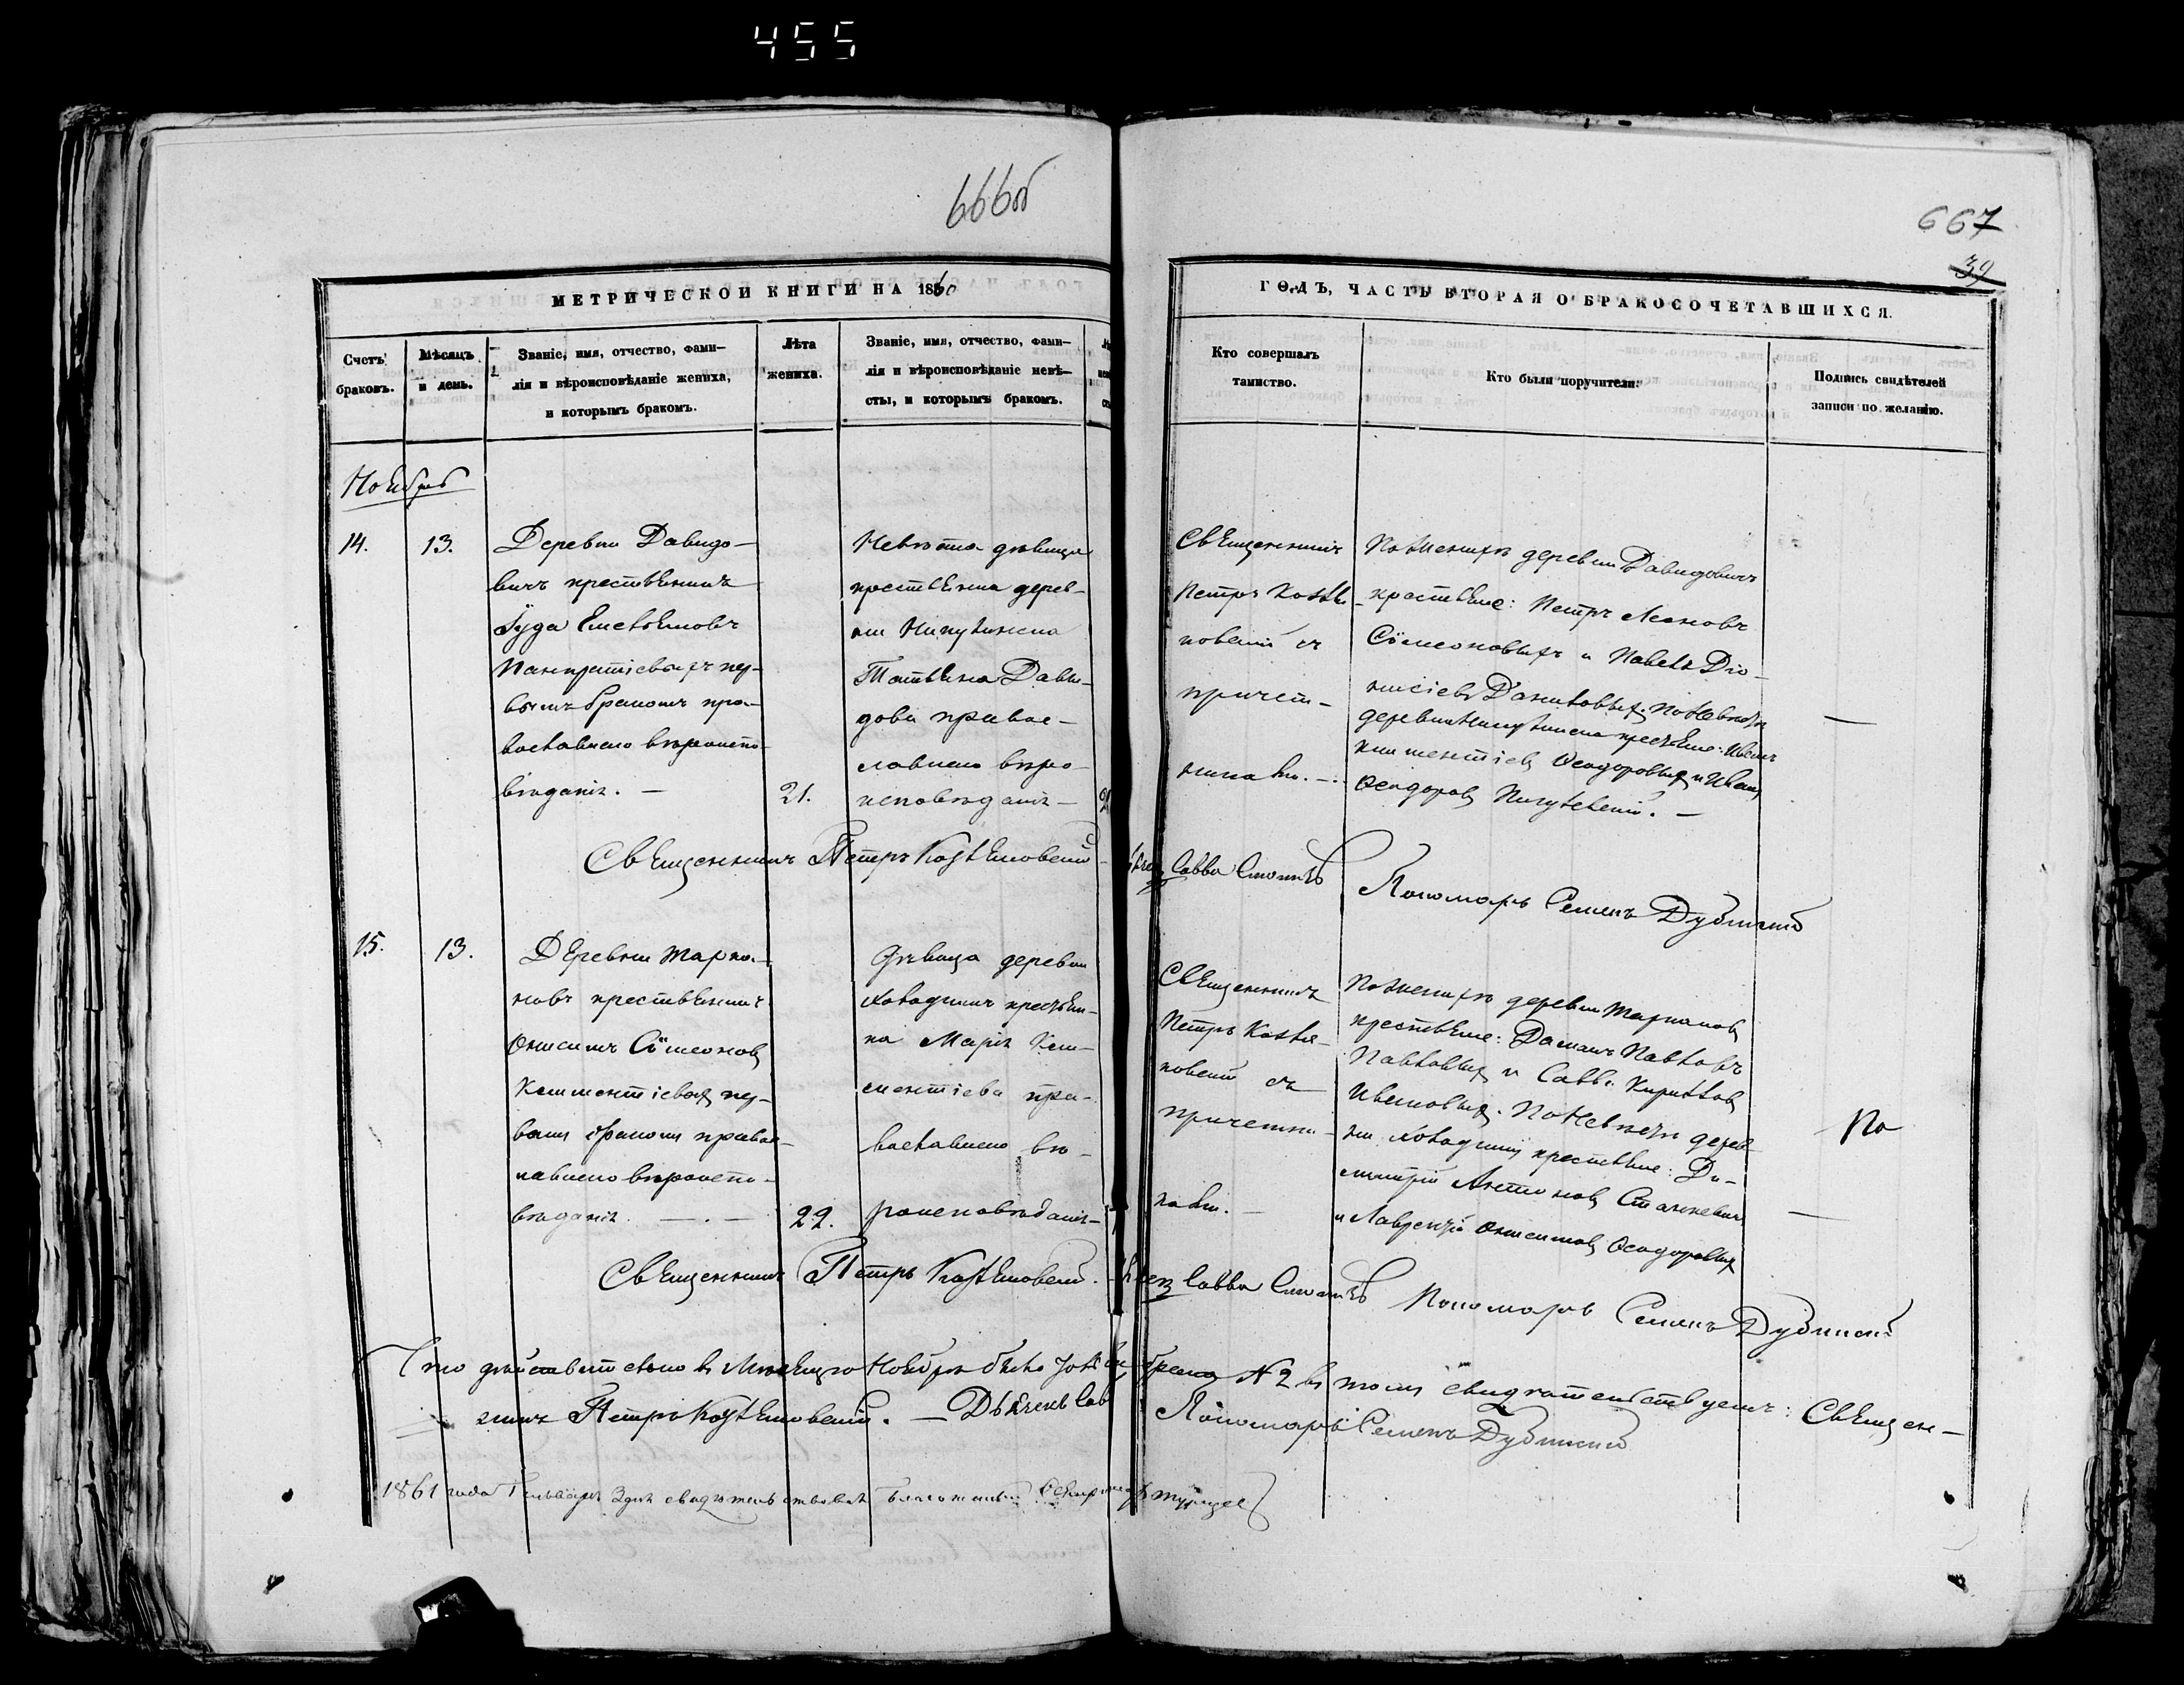 455
666об
667
39
МЕТРИЧЕСКОЙ КНИГИ НА 1860
ГОДЪ, ЧАСТЬ ВТОРАЯ О БРАКОСОЧЕТАВШИХСЯ.
Счетъ
браковъ.
Мѣсяцъ
и день.
Званіе, имя, отчество, фами-
лія и вѣроисповѣданіе жениха,
и которымъ бракомъ.
Лѣта
жениха.
Званіе, имя, отчество, фами-
лія и вѣроисповѣданіе невѣ-
сты, и которымъ бракомъ.
Кто совершалъ
таинство.
Кто были поручители.
Подпись свидѣтелей
записи по желанію.
Ноябрь
14.
13.
Деревни Давидо-
вичъ крестьянинъ
Іуда
Панкратіевыхъ пер-
вымъ бракомъ пра-
вославнаго вѣроиспо-
вѣданія. —
21.
Невѣста дѣвица
крестьянка дерев-
ни
Татьяна Давы-
дова правос-
лавнаго вѣро-
исповѣданія —
Священникъ
Петръ
съ
причет-
никами. —
По женихѣ деревни Давидовичъ
крестьяне: Петръ Леоновъ
Сѵмеоновыхъ и Павелъ Діо-
нисіевъ Даниловыхъ. По невѣстѣ
деревни крестьяне: Иванъ
Климентіевъ Ѳеодоровыхъ и Иванъ
Ѳеодоровъ
—
Священникъ Петръ
Савва
Пономарь Семенъ Дубинскій
15.
13.
Деревни Марко-
новъ крестьянинъ
Онисимъ Сѵмеоновъ
Климентіевыхъ пер-
вымъ бракомъ правос-
лавнаго вѣроиспо-
вѣданія. — . —
22.
Дѣвица деревни
крестьян-
ка Марія Кли-
ментіева пра-
вославнаго вѣ-
роисповѣданія —
Священникъ
Петръ
съ
причетни-
ками. —
По женихѣ деревни
крестьяне: Даміанъ Павловъ
Павловыхъ и Савва Кириловъ
Ивановыхъ. По невѣстѣ дерев-
ни крестьяне: Ди-
митрій Антоновъ Станкевичъ
и Лаврентій Онисимовъ Ѳеодоровыхъ
По
—
Священникъ Петръ
Савва
Пономарь Семенъ Дубинскій
Что дѣйствительно въ Мѣсяцѣ Ноябрѣ было № 2 въ томъ свидѣтельствуемъ: Священ-
никъ Петръ — Дьячекъ
Пономарь Семенъ Дубинскій
1861 года Генваря 3 дня свидѣтельствовалъ Благочинный